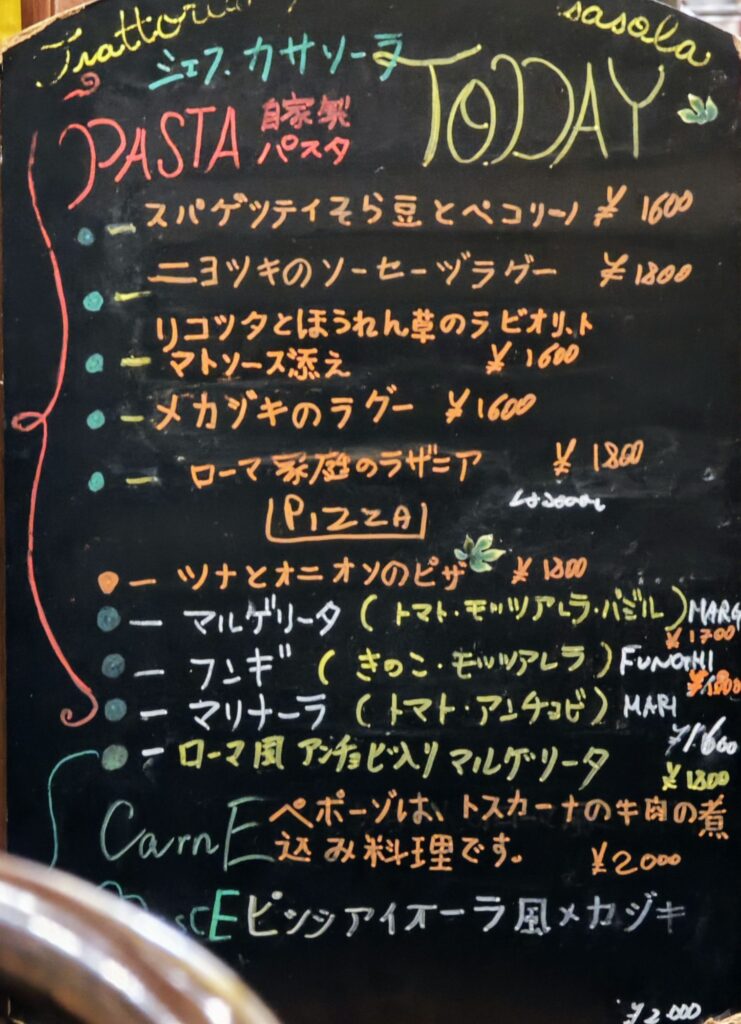 Trattoria
sasola
シェフ. カサソーラ
TODAY
PASTA 自家製
パスタ
スパゲツテイそら豆とペコリーノ ¥1600
ニヨツキのソーセーヅラグー ¥1800
リコツタとほうれん草のラビオリ、ト
マトソーズ添え ¥1600
メカジキのラグー ¥1600
ローマ家庭のラザニア ¥1800
PIZZA
ツナとオニオンのピザ ¥1800
マルゲリータ (トマト・モッツアレラ・バジル) MARG
¥1700
フンギ (きのこ・モッツアレラ) FUNGHI
マリナーラ (トマト・アンチョビ) MARI
¥1600
ローマ風アンチョビ入りマルゲリータ
¥1800
CarnE ペポーゾは、トスカーナの牛肉の煮
込み料理です。 ¥2000
scE ピシシアイオーラ風メカジキ
¥2000